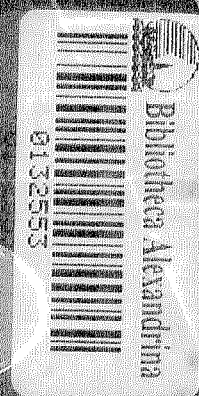 Bibliotheca Alexandrina
0132553